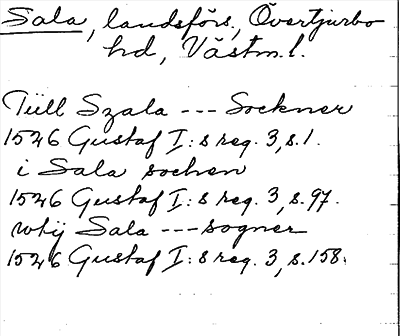 Sala, landsförs., Övertjurbo
hd, Västm. l.
Tüll Szala --- Sockner
1526 Gustaf I:s reg. 3, s. 1.
i Sala sochen
1526 Gustaf I:s reg. 3, s. 97.
wtij Sala --- sogner
1526 Gustaf I:s reg. 3, s. 158.